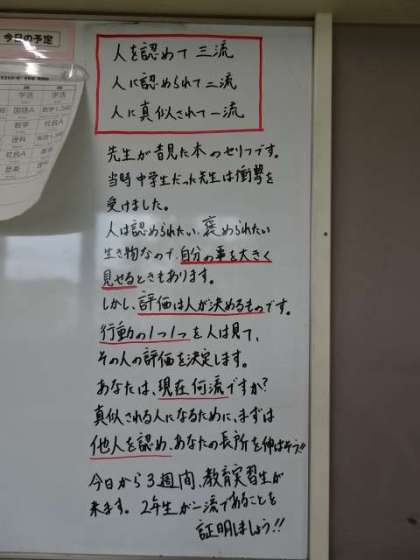 今日の予定
人を認めて三流
人に認められて二流
人に真似されて一流
先生が昔見た本のセリフです。
当時中学生だった先生は衝撃を
受けました。
人は認められたい、褒められたい
生き物なので、自分の事を大きく
見せるときもあります。
しかし、評価は人が決めるものです。
行動の1つ1つを人は見て、
その人の評価を決定します。
あなたは、現在何流ですか?
真似される人になるために、まずは
他人を認め、あなたの長所を伸ばそう!!
今日から3週間、教育実習生が
来ます。2年生が一流であることを
証明しましょう!!